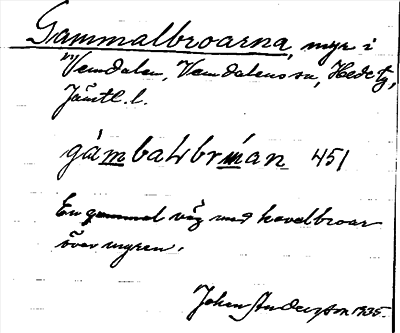 Gammalbroarna, myr i
Vemdalen, Vemdalens sn, Hede tg,
Jämtl. l.
gámbaLbrẃan 451
En gammal väg med kavelbroar
över myren.
Johan Anderson 1935.